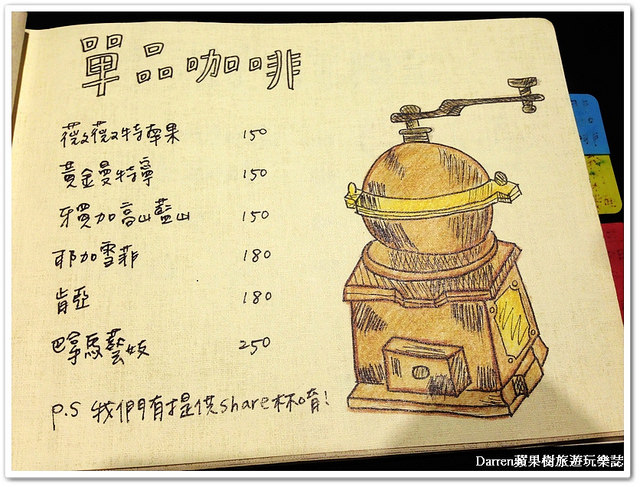 單品咖啡
薇薇特南果 150
黃金曼特寧 150
牙買加高山藍山 150
耶加雪菲 180
肯亞 180
巴拿馬藝妓 250
P.S 我們有提供share杯唷!
Darren蘋果樹旅遊玩樂誌